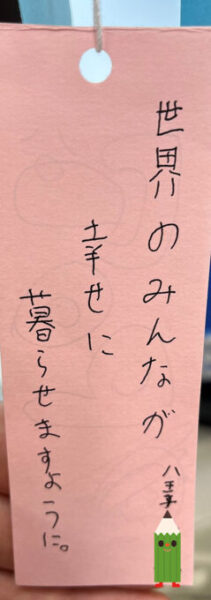 世界のみんなが
幸せに
暮らせますように。
八王子